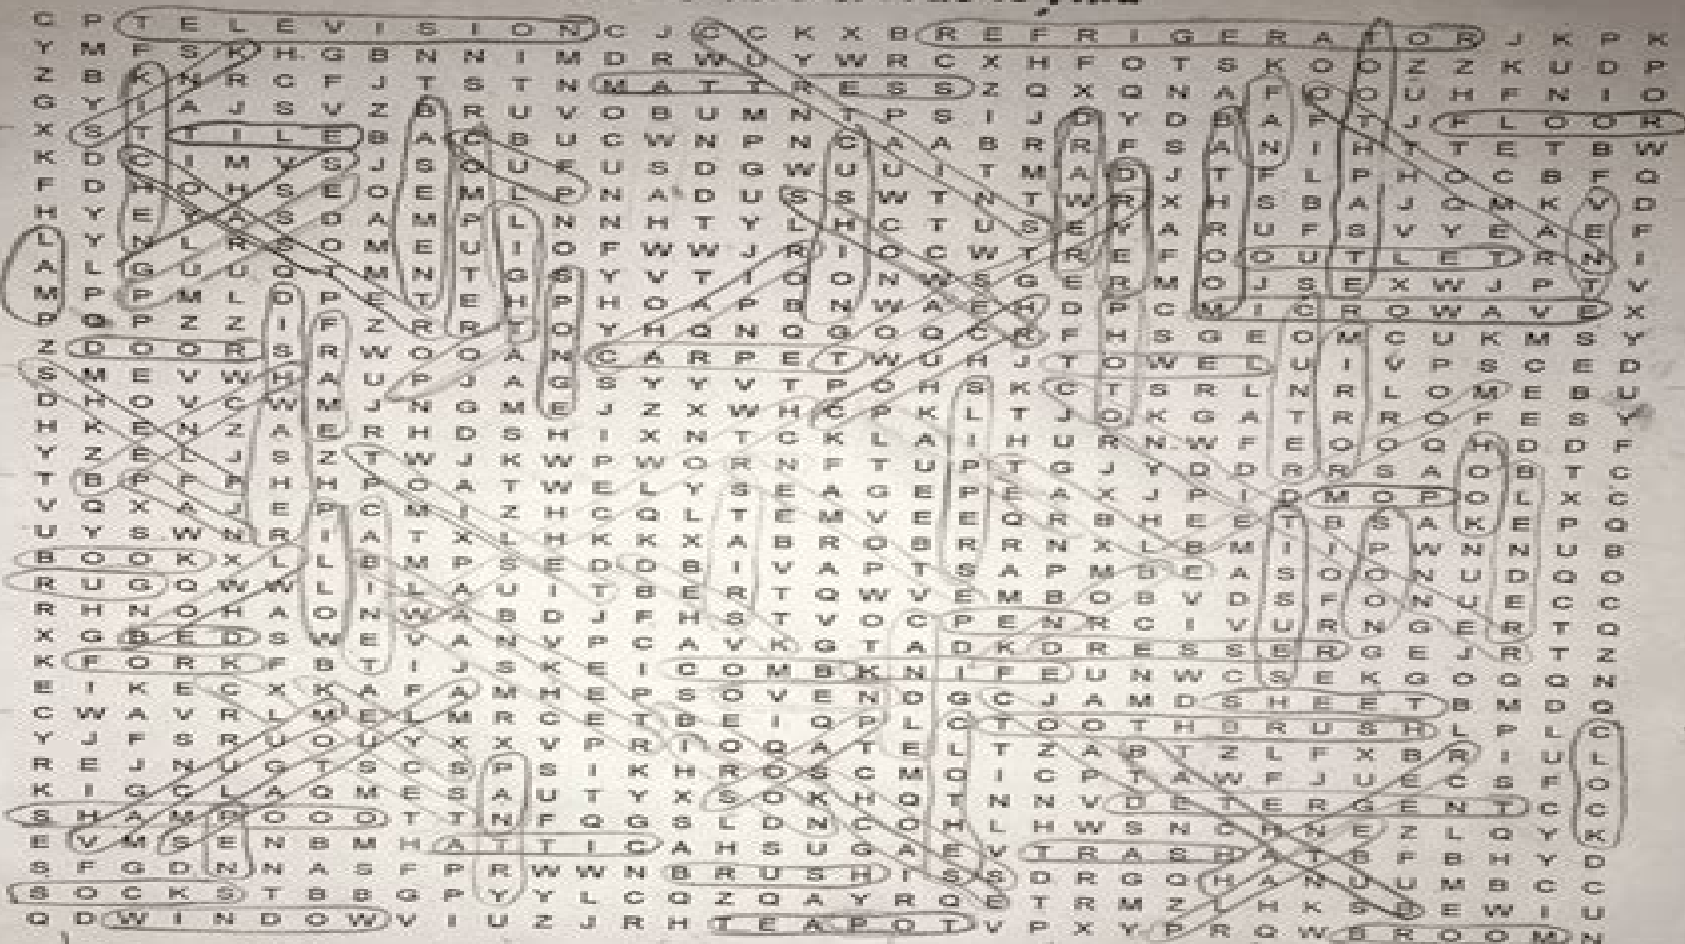 C P T E L E V I S I O N C J C C K X B R E F R I G E R A T O R J K P K
Y M F S K H G B N N I M D R W U Y W R C X H F O T S K O O Z Z K U D P
Z B K N R C F J T S T N M A T T R E S S Z Q X Q N A F D O U H F N I O
G Y I A J S V Z B R U V O B U M N T P S I J D Y D B A F T J F L O O R
X S T T I L E B A C B U C W N P N C A A B R R F S A N I H T T E T B W
K D C I M V S J S O U F U S D G W U U I T M A D J T F L P H O C B F Q
F D H O H S E O E M L P N A D U S S W T N T W R X H S B A J O M K V D
H Y E Y A S D A M P L N N H T Y L H C T U S E Y A R U F S V Y E A E F
L Y N L R S O M E U I O F W W J R I O C W T R E F O O U T L E T R N I
A L G U U O T M N T G S Y V T I O O N W S G E R M O J S E X W J P T V
M P P M L D P E T E H P H O A P B N W A E H D P C M I C R O W A V E X
P Q P Z Z I F Z R R T O Y H Q N Q G O Q C R F H S G E O M C U K M S Y
Z D O O R S R W O O A N C A R P E T W U H J T O W E L U I V P S C E D
S M E V W H A U P J A G S Y Y V T P O H S K C T S R L N R L O M E B U
D H O V C W M J N G M E J Z X W H C P K L T J O K G A T R R O F E S Y
H K E N Z A E R H D S H I X N T C K L A I H U R N W F E O O Q H D D F
Y Z E L J S Z T W J K W P W O R N F T U P T G J Y D D R R S A O B T C
T B P P P H H P O A T W E L Y S E A G E P E A X J P I D M O P O L X C
V Q X A J E P C M I Z H C Q L T E M V E E Q R B H E E T B S A K E P Q
U Y S W N R I A T X L H K K X A B R O B R R N X L B M I I P W N N U B
B O O K X L L B M P S E D D B I V A P T S A P M B E A S O O N U D Q O
R U G Q W W L I L A U I T B E R T Q W V E M B O B V D S F O N U E C C
R H N O H A O N W A B D J F H S T V O C P E N R C I V U R N G E R T Q
X G B E D S W E V A N V P C A V K G T A D K D R E S S E R G E J R T Z
K F O R K F B T I J S K E I C O M B K N I F E U N W C S E K G O Q Q N
E I K E C X K A F A M H E P S O V E N D G C J A M D S H E E T B M D Q
C W A V R L M E L M R C E T B E I Q P L C T O O T H B R U S H L P L C
Y J F S R U O U Y X X V P R I O Q A T E L T Z A B T Z L F X B R I U L
R E J N U G T S C S P S I K H R O S C M Q I C P T A W F J U E C S F O
K I G C L A Q M E S A U T Y X S O K H Q T N N V D E T E R G E N T C C
S H A M P O O O T T N F Q G S L D N C O H L H W S N C H N E Z L Q Y K
E V M S E N B M H A T T I C A H S U G A E V T R A S H A T B F B H Y D
S F G D N N A S F P R W W N B R U S H I S S D R G Q H A N U U M B C C
S O C K S T B B G P Y Y L C Q Z Q A Y R Q E T R M Z L H K S D E W I U
Q D W I N D O W V I U Z J R H T E A P O T V P X Y P R Q W B R O O M N